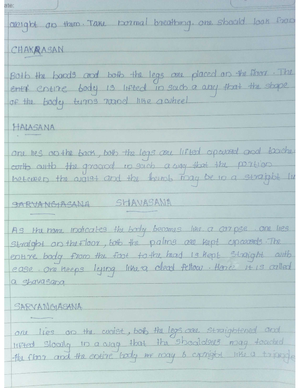 straight on them. Take normal breathing. one should look
CHAKRASAN
Both the hands and both the legs are placed on the floor. The
entire body is lifted in such a way that the shape
of the body turns round like a wheel.
HALASANA
one lies on the back, both the legs are lifted upward and
with the ground in such a way that the portion
between the waist and the may be in a straight
SARVANGASANA SHAVASANA
As the name indicates the body becomes like a corpse. one lies
straight on the floor, both the palms are kept upwards. The
entire body from the foot to the head is kept straight with
ease. one keeps lying like a dead fellow. Hence it is called
a shavasana
SARVANGASANA
one lies on the waist, both the legs are straightened and
lifted slowly in a way that the shoulders may touch
the floor and the entire body may be upright like a